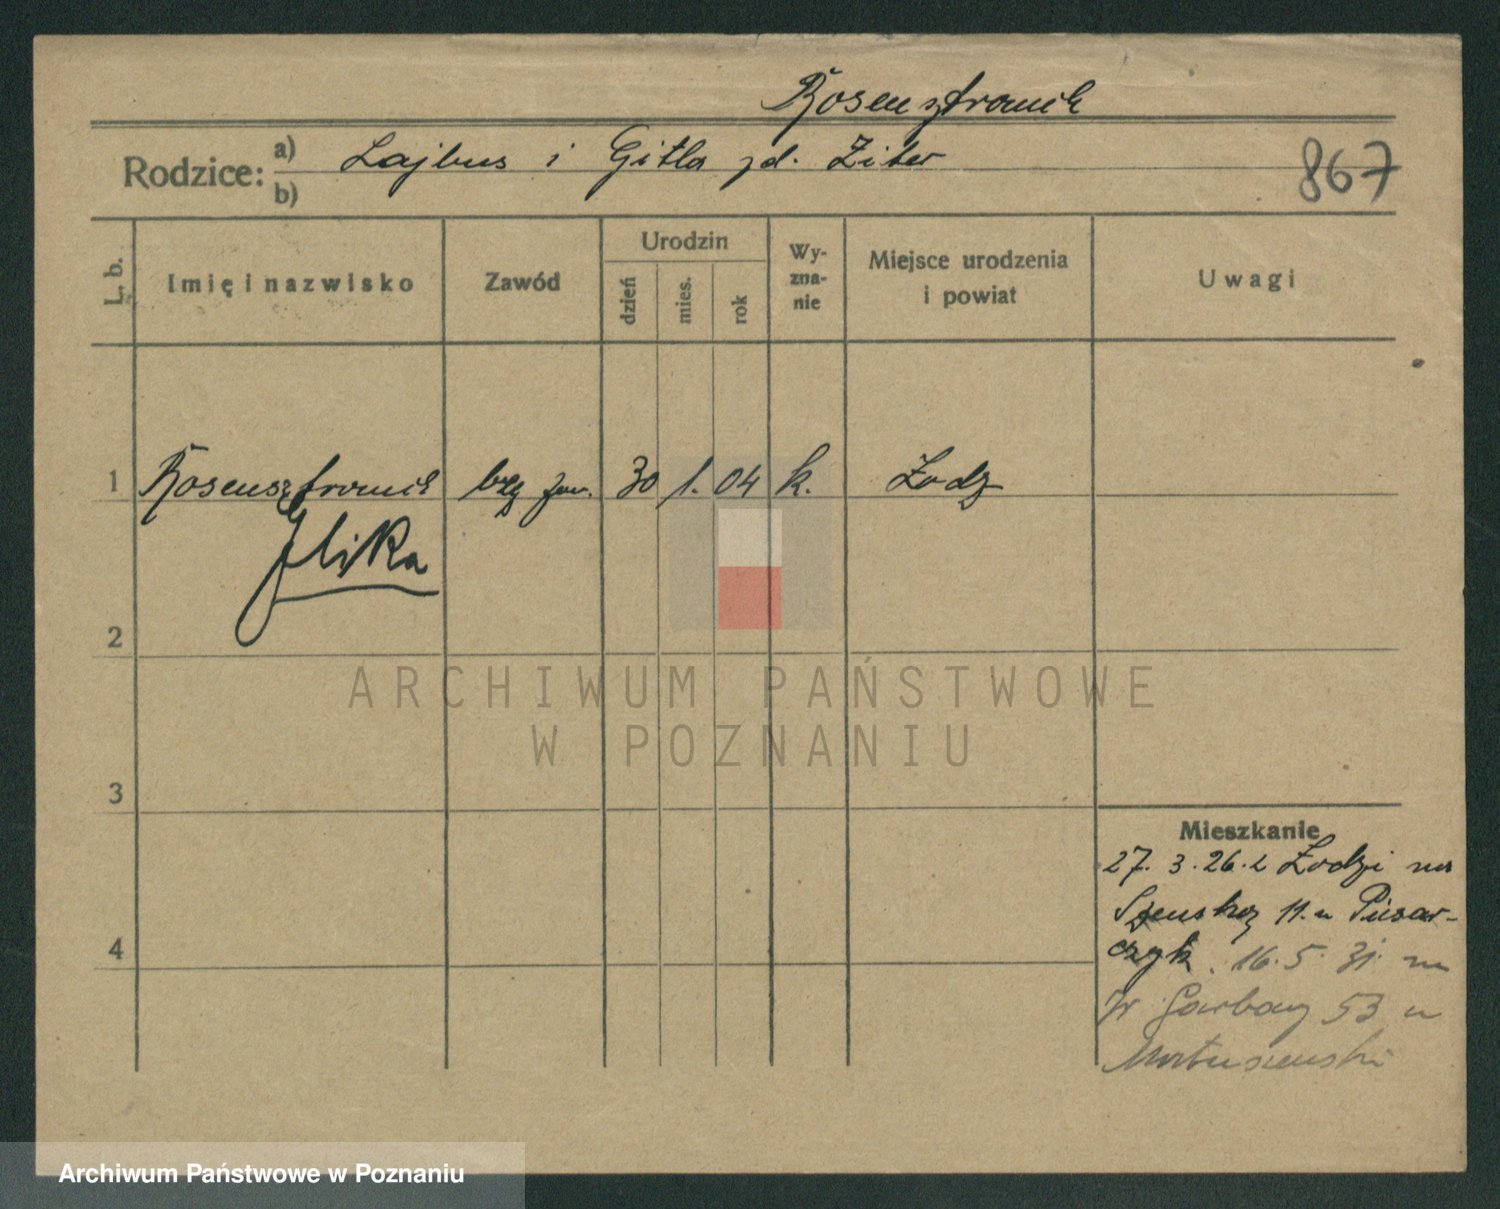 Rosensztrauch
Rodzice: a) Lajbus i Gitla zd. Ziter
b)
867
L. b.
Imię i nazwisko
Zawód
Urodzin
dzień
mies.
rok
Wy-
zna-
nie
Miejsce urodzenia
i powiat
Uwagi
1 Rosensztrauch 30 1. 04 k. Łodz
2
3
4
Mieszkanie
27. 3. 26. z Łodzi na
11. u Pisar-
czyk. 16. 5. 31. na
Garbary 53 u
ARCHIWUM PAŃSTWOWE
W POZNANIU
Archiwum Państwowe w Poznaniu